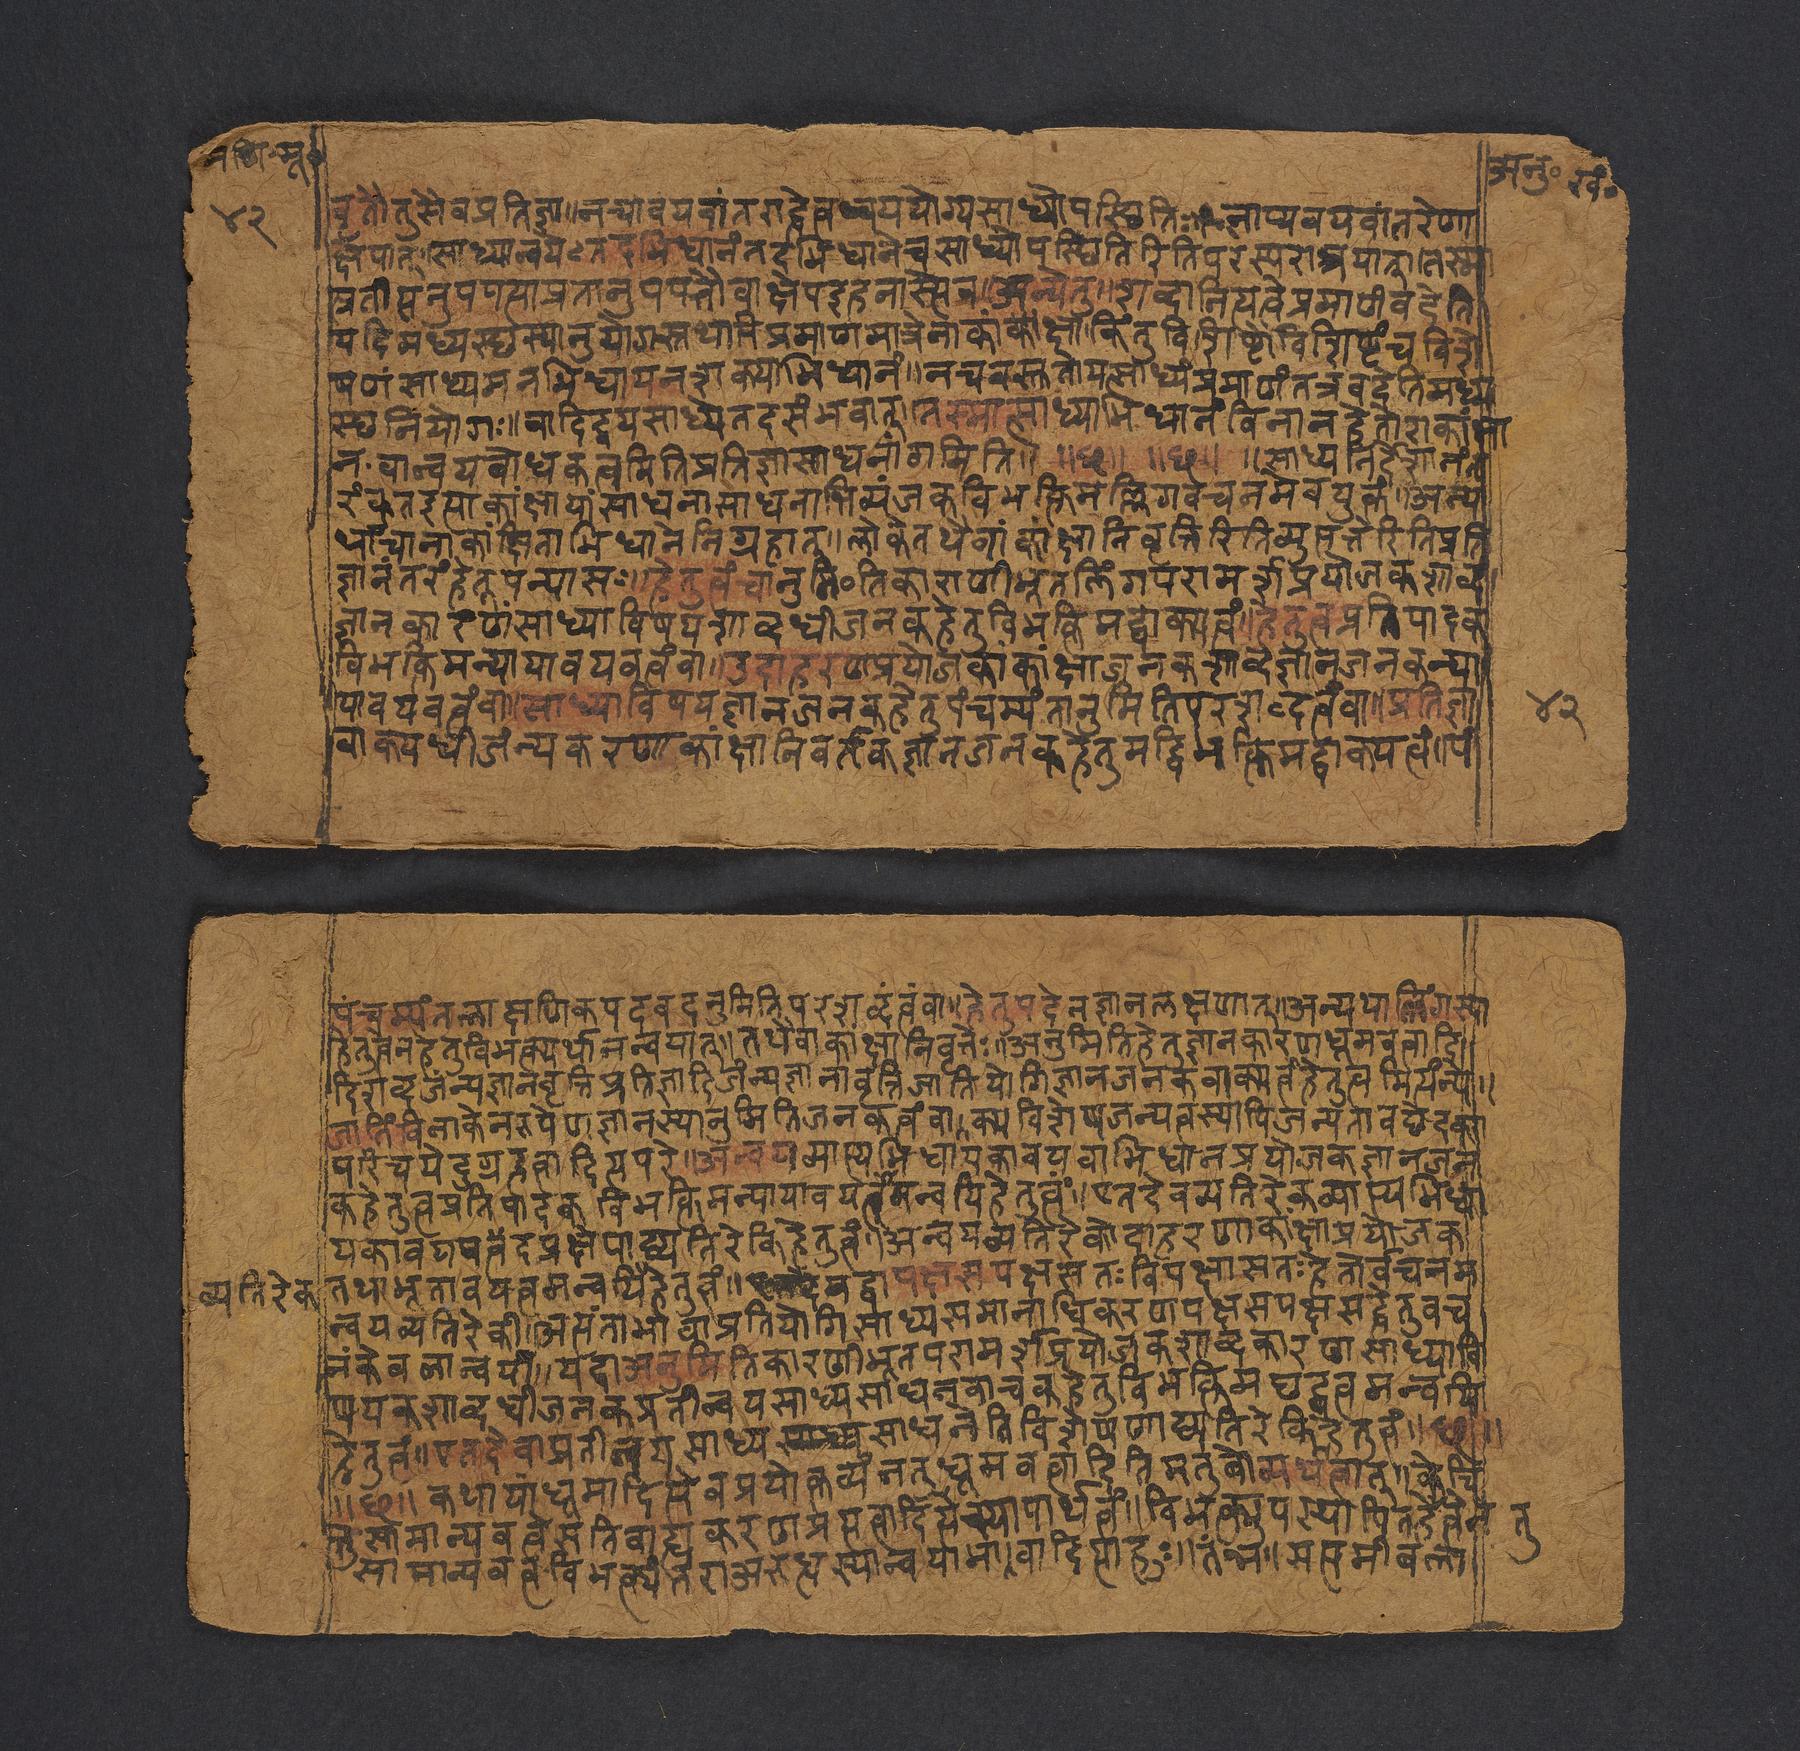 अनु॰ खं॰
४२
वृत्तौ तु सैव प्रतिज्ञा॥ न चावयवांतरादेवान्वययोग्यसाध्योपस्थितिः॥ नाप्यवयवांतरेणा
क्षेपात्॥ साध्यान्वये तदभिधानं तदभिधाने च साध्योपस्थितिरिति परस्पराश्रयात्॥ तस्मा
अन्येतु॥ शब्दानित्यत्वे प्रमाणं वदेति
यदि मध्यस्थस्यानुयोगस्तथापि प्रमाणमात्रे नाकांक्षा॥ किंतु विशिष्टे विशिष्टं च विशे
षणं साध्यमनभिधाय न शक्याभिधानं॥ न च वस्तुतो यत्साध्यं प्रमाणं तत्र वदेति मध्य
स्थनियोगः॥ वादिद्वयसाध्ये तदसंभवात्॥ तस्मात्साध्याभिधानं विना न हेतोराकांक्षा
न चान्वयबोधकत्वमिति प्रतिज्ञा साधनांगमिति॥ ॥छ॥ ॥छ॥ ॥साध्यनिर्देशानंत
रं कुत इत्याकांक्षायां साधनासाधनाभिव्यंजकविभक्तिमल्लिंगवचनमेव युक्तं॥ अन्य
थाचानाकांक्षिताभिधाने निग्रहात्॥ लोके तथैवाकांक्षानिवृत्तिरिति व्युत्पत्तेरिति प्रति
ज्ञानंतरं हेतूपन्यासः॥ हेतुत्वं चानुमितिकारणीभूतलिंगपरामर्शप्रयोजकशाब्द
ज्ञानकारणसाध्याविषयशाब्दधीजनकहेतुविभक्तिमद्वाक्यत्वं॥ हेतुत्वप्रतिपादक
विभक्तिमन्न्यायावयवत्वं वा॥ उदाहरणप्रयोजकाकांक्षाजनकशाब्दज्ञानजनकन्या
यावयवत्वं वा॥ साध्याविषयज्ञानजनकहेतुपंचम्यंतानुमितिपरशब्दत्वं वा॥ प्रतिज्ञा
वाक्यधीजन्यकरणाकांक्षानिवर्तकज्ञानजनकहेतुमद्विभक्तिमद्वाक्यत्वं॥ पं
४२
पंचम्यंतलाक्षणिकपदवदनुमितिपरशब्दत्वं वा॥ हेतुपदेन ज्ञानलक्षणात्॥ अन्यथा लिंगस्या
हेतुत्वेन हेतुविभक्त्यर्थानन्वयात्॥ तथैवाकांक्षानिवृत्तेः॥ अनुमितिहेतुज्ञानकारणधूमवत्त्वादि
दिशब्दजन्यज्ञानवृत्तिप्रतिज्ञादिजन्यज्ञानावृत्तिजातियोगिज्ञानजनकवाक्यत्वं हेतुत्वमित्यन्ये॥
जातिं विना केन रूपेण ज्ञानस्यानुमितिजनकत्वं वाक्यविशेषजन्यत्वस्यापि जन्यतावच्छेदका
परिचये दुर्ग्रहत्वादित्यपरे॥ अन्वयव्याप्त्यभिधायकावयवाभिधानप्रयोजकज्ञानजन
कहेतुत्वप्रतिपादकविभक्तिमन्न्यायावयवत्वमन्वयिहेतुत्वं॥ एतदेव व्यतिरेकव्याप्त्यभिधा
यकावयवत्वप्रक्षेपाद्व्यतिरेकिहेतुत्वं॥ अन्वयव्यतिरेकोदाहरणाकांक्षाप्रयोजक
व्यतिरेक तथाभूतावयवत्वमन्वयिहेतुत्वं॥ यद्वा पक्षसपक्षसतः विपक्षासतः हेतोर्वचनम
न्वयव्यतिरेकी॥ अत्यंताभावाप्रतियोगिसाध्यसमानाधिकरणपक्षसपक्षसद्धेतुवच
नं केवलान्वयी॥ यद्वा अनुमितिकारणीभूतपरामर्शप्रयोजकशाब्दकारणसाध्यावि
षयकशाब्दधीजनकप्रतीतान्वयसाध्यसाधनवाचकहेतुविभक्तिमच्छब्दत्वमन्वयि
हेतुत्वं॥ एतदेवाप्रतीतान्वयसाध्यसाधनेति विशेषणाद्व्यतिरेकिहेतुत्वं॥ ॥छ॥
॥छ॥ कथायां धूमादित्येव प्रयोक्तव्यं न तु धूमवत्त्वादिति मतुपो व्यर्थत्वात्॥ केचि
त्तु सामान्यवत्त्वे सति बाह्यकरणप्रत्यक्षत्वादित्यस्यापार्थत्वं॥ विभक्त्युपस्थापितहेतुत्वेन तु
सामान्यवत्त्वविभक्त्यंतरावरुद्धस्यान्वयाभावादित्याहुः॥ तन्न॥ सप्तमीबला